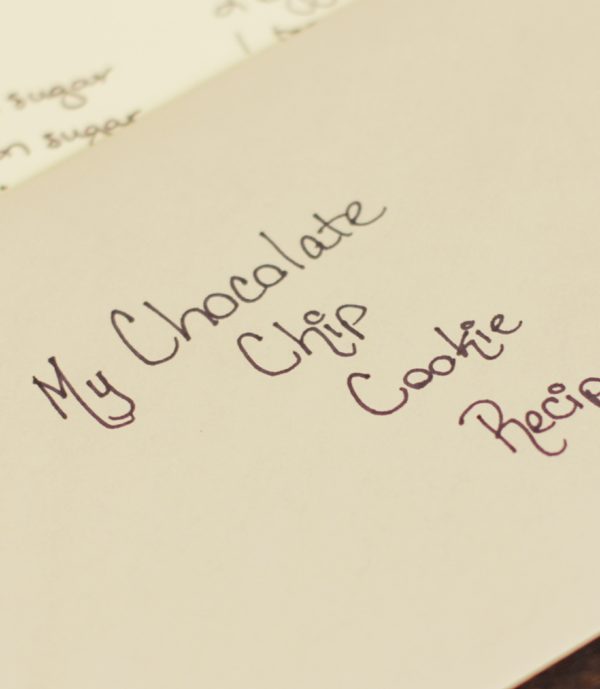 sugar
sugar
My Chocolate
Chip
Cookie
Recip